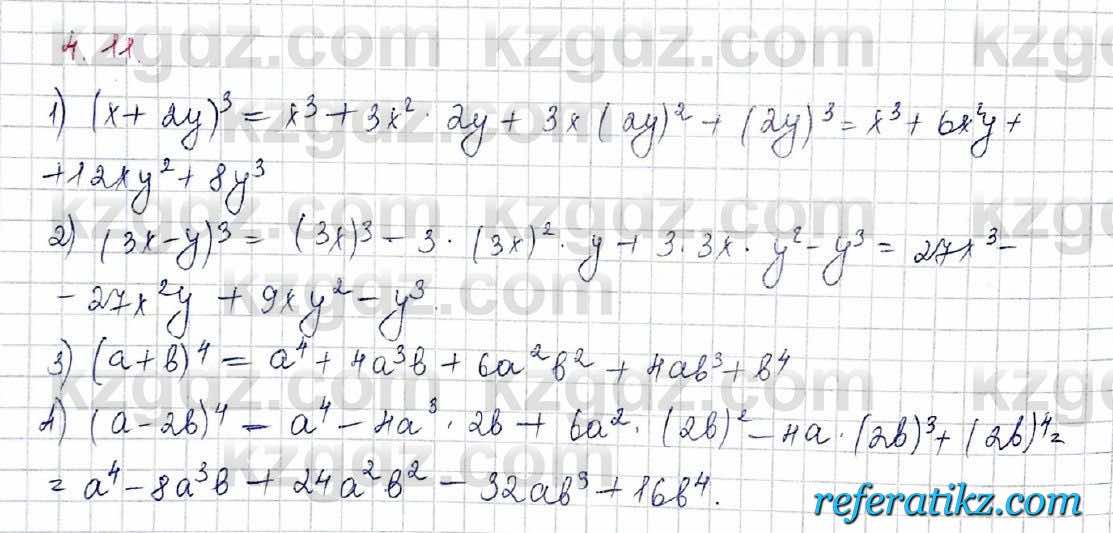 4.11.
1) (x + 2y)³ = x³ + 3x² · 2y + 3x (2y)² + (2y)³ = x³ + 6x²y +
+ 12xy² + 8y³
2) (3x - y)³ = (3x)³ - 3 · (3x)² · y + 3 · 3x · y² - y³ = 27x³ -
- 27x²y + 9xy² - y³.
3) (a + b)⁴ = a⁴ + 4a³b + 6a²b² + 4ab³ + b⁴
4) (a - 2b)⁴ = a⁴ - 4a³ · 2b + 6a² · (2b)² - 4a · (2b)³ + (2b)⁴ =
= a⁴ - 8a³b + 24a²b² - 32ab³ + 16b⁴.
kzgdz.com
referatikz.com